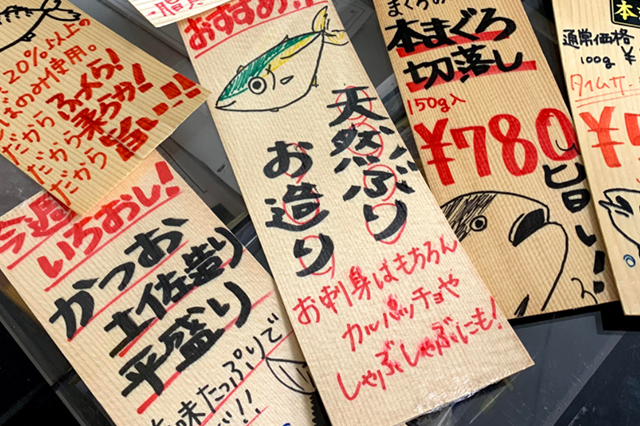 20%以上の
ばのみ使用。
だからふっくら!
だから柔らか!
だから旨い!!
今週
いちおし!
かつお
土佐造り
平盛り
味たっぷりで
おすすめ!!
天然ぶり
お造り
お刺身はもちろん
カルパッチョや
しゃぶしゃぶにも!
まぐろの
本まぐろ
切落し
150g入
¥780
旨い!
本
通常価格
100g ¥
タイムサ